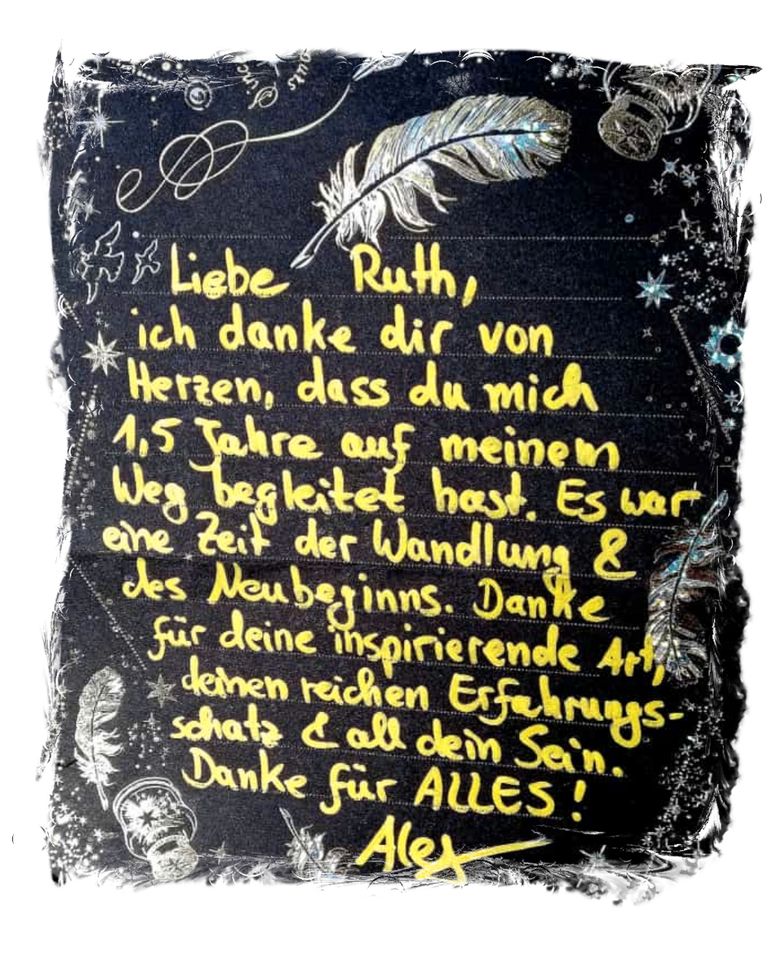 Liebe Ruth,
ich danke dir von
Herzen, dass du mich
1,5 Jahre auf meinem
Weg begleitet hast. Es war
eine Zeit der Wandlung &
des Neubeginns. Danke
für deine inspirierende Art,
deinen reichen Erfahrungs-
schatz & all dein Sein.
Danke für ALLES!
Alex